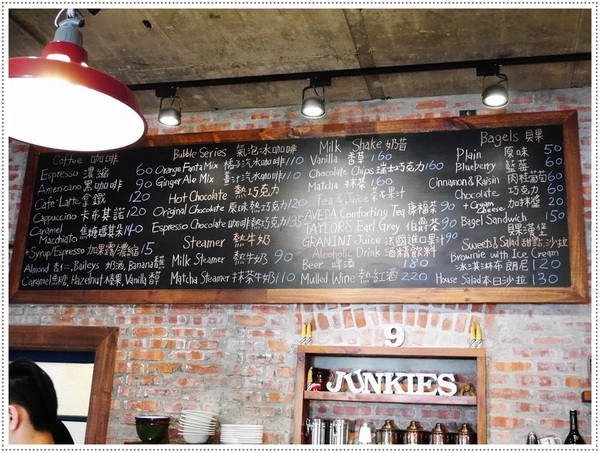 Coffee 咖啡
Espresso 濃縮 60
Americano 黑咖啡 90
Cafe Latte 拿鐵 120
Cappuccino 卡布其諾 120
Caramel Macchiato 焦糖瑪其朵 140
+Syrup/Espresso 加果露/濃縮 15
Almond 杏仁, Baileys 奶酒, Banana蕉
Caramel焦糖, Hazelnut榛果, Vanilla
Bubble Series 氣泡冰咖啡
Orange Fanta Mix 橘子汽水咖啡 110
Ginger Ale Mix 薑汁汽水咖啡 110
Hot Chocolate 熱巧克力
Original Chocolate 原味熱巧克力 120
Espresso Chocolate 咖啡熱巧克力 135
Steamer 熱牛奶
Milk Steamer 熱牛奶 90
Matcha Steamer 抹茶牛奶 110
Milk Shake 奶昔
Vanilla 香草 160
Chocolate Chips 瑞士巧克力 160
Matcha 抹茶 160
Tea & Juice 茶+果汁
AVEDA Comforting Tea 康福茶 90
TAYLORS Earl Grey 伯爵茶 90
GRANINI Juice 法國進口果汁 90
Alcoholic Drink 酒精飲料
Beer 啤酒 180
Mulled Wine 熱紅酒 220
Bagels 貝果
Plain 原味 50
Blueberry 藍莓 60
Cinnamon & Raisin 肉桂葡萄 60
Chocolate 巧克力 60
+ Cream Cheese 加抹醬 20
Bagel Sandwich 貝果漢堡 150
Sweets & Salad 甜點,沙拉
Brownie with Ice Cream
冰淇淋布朗尼 120
House Salad 本日沙拉 130
9
JUNKIES